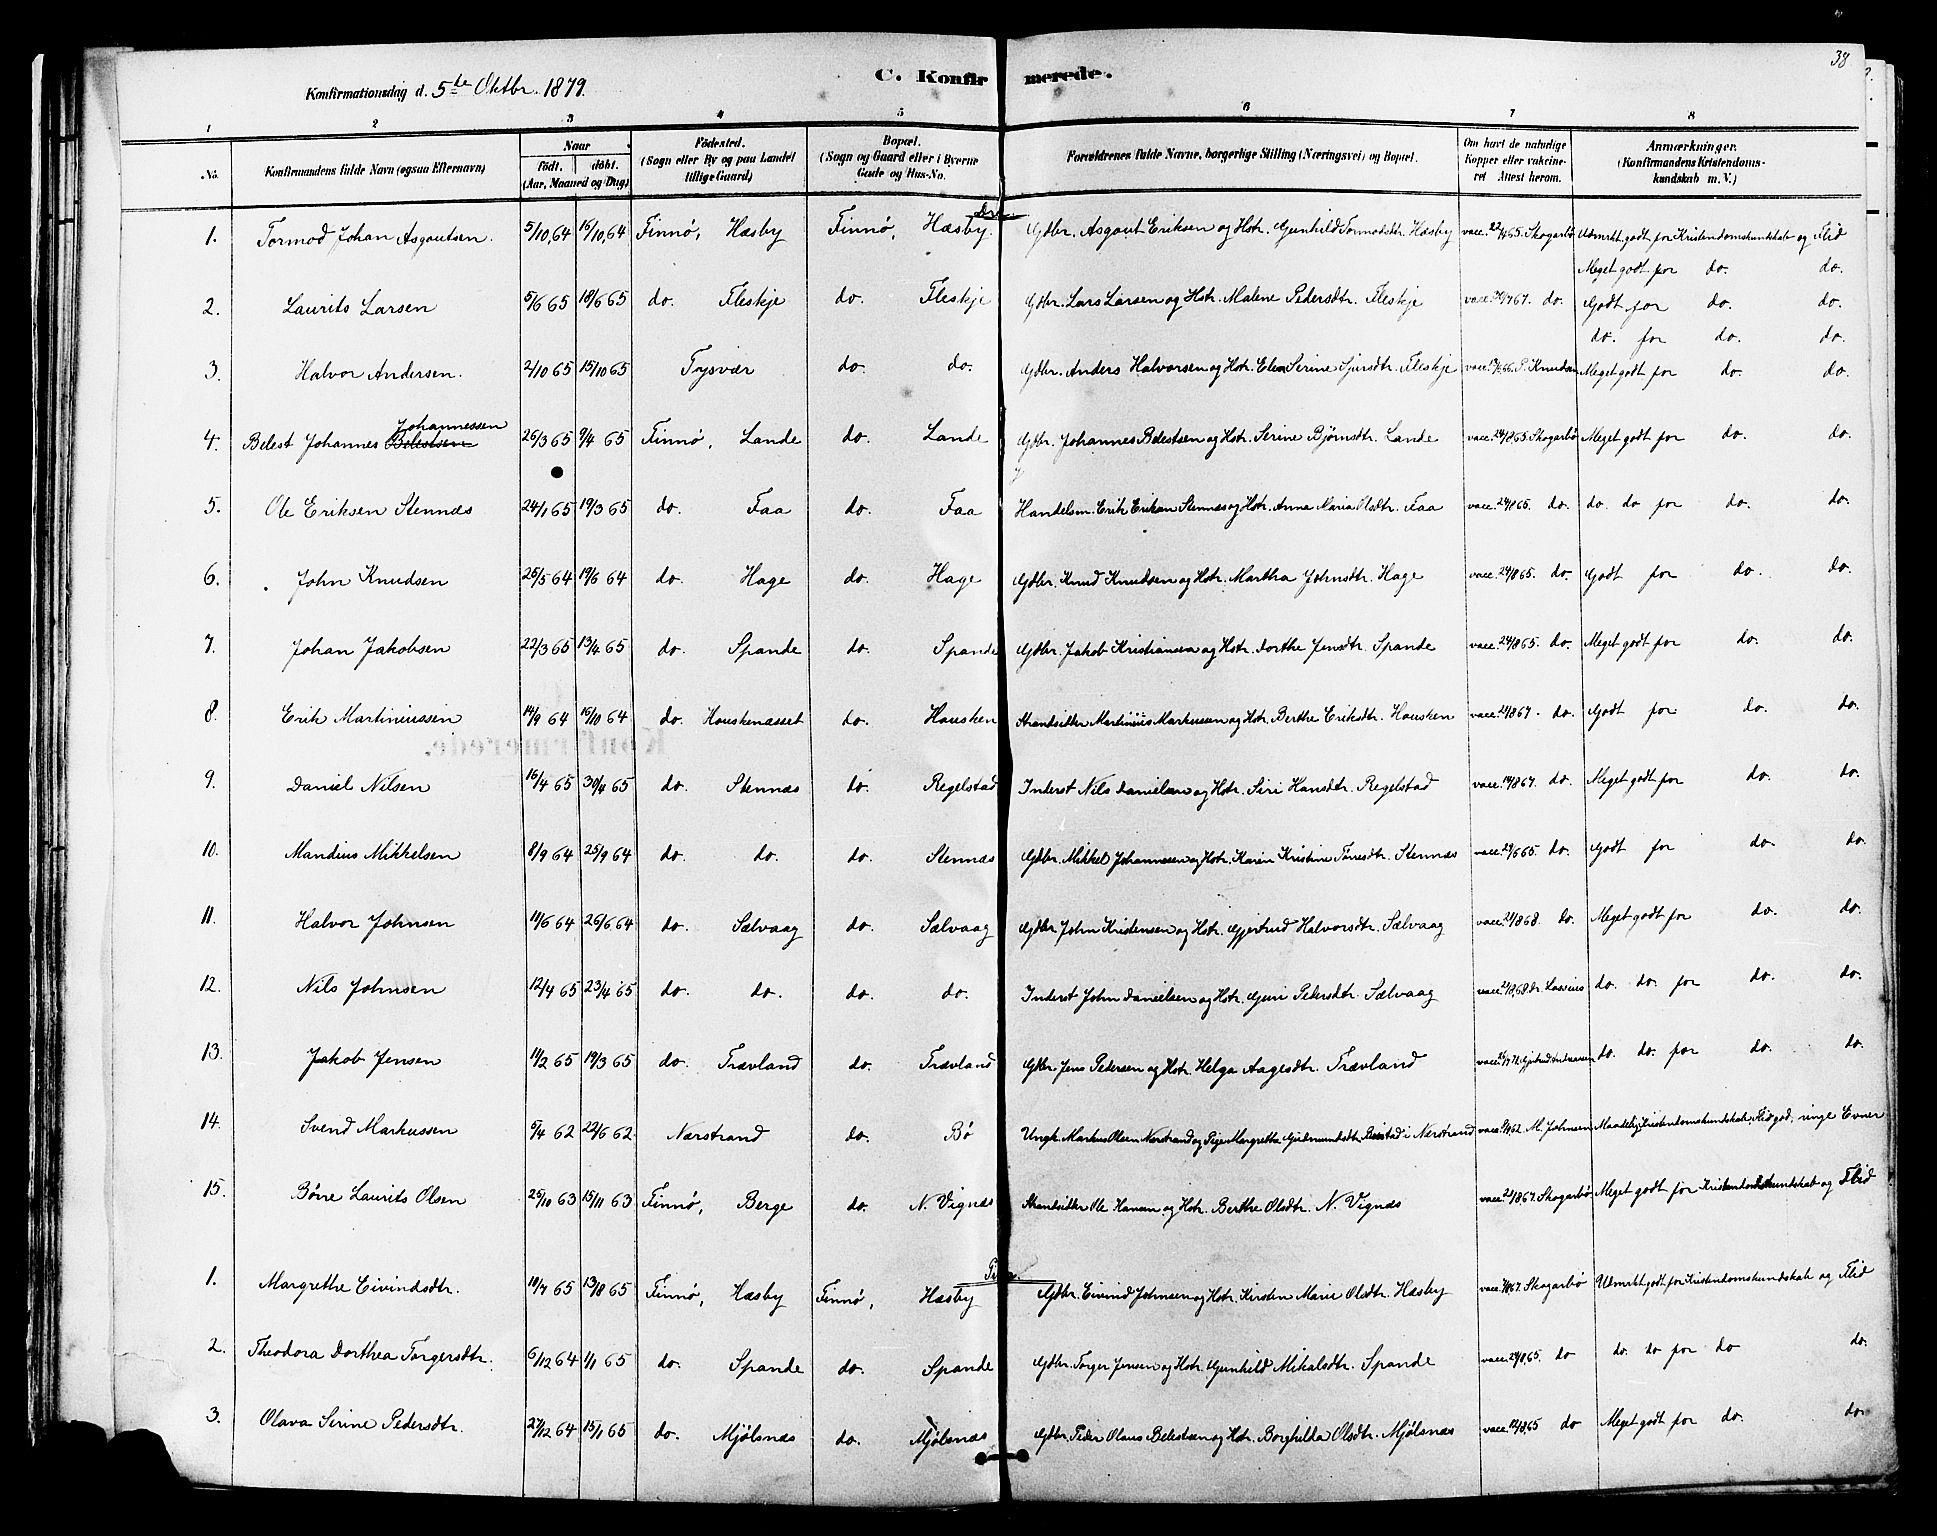 38
C. Konfirmerede.
Konfirmationsdag d. 5te Oktbr. 1879.
1 2 3 4 5 6 7 8
No. Konfirmandens fulde Navn (ogsaa Efternavn) Naar født. døbt. (Aar, Maaned og Dag) Födested. (Sogn eller By og paa Landet tillige Gaard) Bopæl. (Sogn og Gaard eller i Byerne Gade og Hus-No. Forældrenes fulde Navne, borgerlige Stilling (Næringsvei) og Bopæl. Om havt de naturlige Kopper eller vaccineret Attest herom. Anmærkninger. (Konfirmandens Kristendomskundskab m. V.)
1. Tormod Johan Asgautsen. 5/10,64 16/10,64 Finnø, Hæsby Finnø, Hæsby. Gdbr. Asgaut Eriksen og Hstr. Gunhild Tormodsdtr. Hæsby vacc. Skogarbø Udmrkt. godt for Kristendomskundskab og Flid
Meget godt for do. do.
2. Laurits Larsen 5/6 65 18/6 65 do. Fleskje do. Fleskje Gdbr. Lars Larsen og Hstr. Malene Pedersdtr. Fleskje vacc. do. Godt for do. do.
do. for do. do.
3. Halvor Andersen. 2/10 65 15/10 65 Tysvær do. do. Gdbr. Anders Halvorsen og Hstr. Elen Serine Sjursdtr. Fleskje vacc. Knudsen Meget godt for do. do.
4. Belest Johannes Belestsen Johannessen 26/3 65 9/4 65 Finnø, Lande do. Lande Gdbr. Johannes Belestsen og Hstr. Serine Bjørnsdtr. Lande vacc. 24/8 65. Skogarbø Meget godt for do. do.
5. Ole Eriksen Stennæs 24/1 65 19/3 65 do. Faa do. Faa Handelsm. Erik Eriksen Stennæs og Hstr. Anna Maria Olsdtr. Faa vacc. 24/8 65. do. do. do for do. do.
6. John Knudsen 25/5 64 19/6 64 do. Hage do. Hage Gdbr. Knud Knudsen og Hstr. Martha Johnsdtr. Hage vacc. 24/8 65. do. Godt for do. do.
7. Johan Jakobsen 22/3 65 13/4 65 do. Spande do. Spande Gdbr. Jakob Kristiansen og Hstr. Dorthe Jensdtr. Spande vacc. 24/8 65. do. Meget godt for do. do.
8. Erik Martiniussen 14/9 64 16/10 64 do. Houskenæsset do. Housken Strandsidder Martinius Markussen og Hstr. Berthe Eriksdtr. Housken vacc. 21/8 67. do. Godt for do. do.
9. Daniel Nilsen 16/4 65 30/4 65 do. Stennæs do. Regelstad Inderst Nils Danielsen og Hstr. Siri Hansdtr. Regelstad vacc. do. Meget godt for do. do.
10. Mandius Mikkelsen 8/9 64 25/9 64 do. do. do. Stennæs Gdbr. Mikkel Johannessen og Hstr. Karen Kristine Torresdtr. Stennæs vacc. 29/6 65. do. Godt for do. do.
11. Halvor Johnsen 11/6 64 26/6 64 do. Sælvaag do. Sælvaag Gdbr. John Kristensen og Hstr. Gjertrud Halvorsdtr. Sælvaag vacc. 21/8 68. do. Meget godt for do. do.
12. Nils Johnsen 12/4 65 23/4 65 do. do. do. do. Inderst John Danielsen og Hstr. Guri Pedersdtr. Sælvaag vacc. do. do. for do. do.
13. Jakob Jensen 11/2 65 19/3 65 do. Trævland do. Trævland Gdbr. Jens Pedersen og Hstr. Helga Aagesdtr. Trævland vacc. do. do. for do. do.
14. Svend Markussen 9/4 62 22/6 62. Nærstrand do. Bø Ungk. Markus Olsen Nærstrand og Pige Margretha Gudmundsdtr. i Nærstrand vacc. M. Johnsen Maadelig Kristendomskundskab, Flid god, ringe Evner
15. Børre Laurits Olsen 25/10 63 15/11 63 Finnø, Berge do. N. Vignæs Strandsidder Ole Hansen og Hstr. Berthe Olsdtr. N. Vignæs vacc. 21/8 67. Skogarbø Meget godt for Kristendomskundskab og Flid
1. Margrethe Eivindsdtr. 18/7 65 13/8 65 Finnø, Hæsby Finnø, Hæsby Gdbr. Eivind Johnsen og Hstr. Kirsten Marie Olsdtr. Hæsby vacc. Skogarbø Udmrkt godt for Kristendomskundskab og Flid
2. Theodora Dorthea Torgersdtr. 6/12 64 1/1 65 do. Spande do. Spande Gdbr. Torger Jensen og Hstr. Gunhild Mikalsdtr. Spande vacc. 24/8 65. do do. do for do do.
3. Olava Serine Pedersdtr. 27/12 64 15/1 65 do. Mjølsnæs do. Mjølsnæs Gdbr. Peder Olaus Belestsen og Hstr. Borghilda Olsdtr. Mjølsnæs vacc. do Meget godt for do. do.